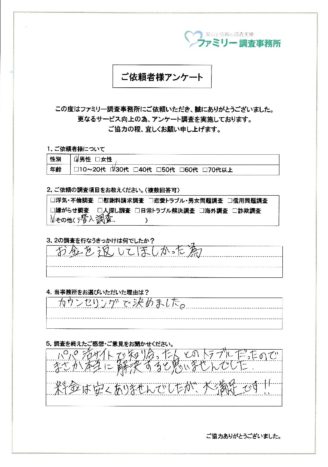 安心と信頼の調査実績
ファミリー調査事務所
ご依頼者様アンケート
この度はファミリー調査事務所にご依頼いただき、誠にありがとうございました。
更なるサービス向上の為、アンケート調査を実施しております。
ご協力の程、宜しくお願い申し上げます。
1. ご依頼者様について
性別 ☑男性 □女性
年齢 □10～20代 ☑30代 □40代 □50代 □60代 □70代以上
2. ご依頼の調査項目をお教えください。（複数回答可）
□浮気・不倫調査 □慰謝料請求調査 □恋愛トラブル・男女問題調査 □信用問題調査
□嫌がらせ調査 □人探し調査 □日常トラブル解決調査 □海外調査 □詐欺調査
☑その他( 潜入調査 )
3. 2の調査を行なうきっかけは何でしたか？
お金を返してほしかった為
4. 当事務所をお選びいただいた理由は？
カウンセリングで決めました。
5. 調査を終えたご感想・ご意見をお聞かせください。
パパ活サイトで知り合った人とのトラブルだったので
まさか本当に解決すると思いませんでした
料金は安くありませんでしたが、大満足です!!
ご協力ありがとうございました。